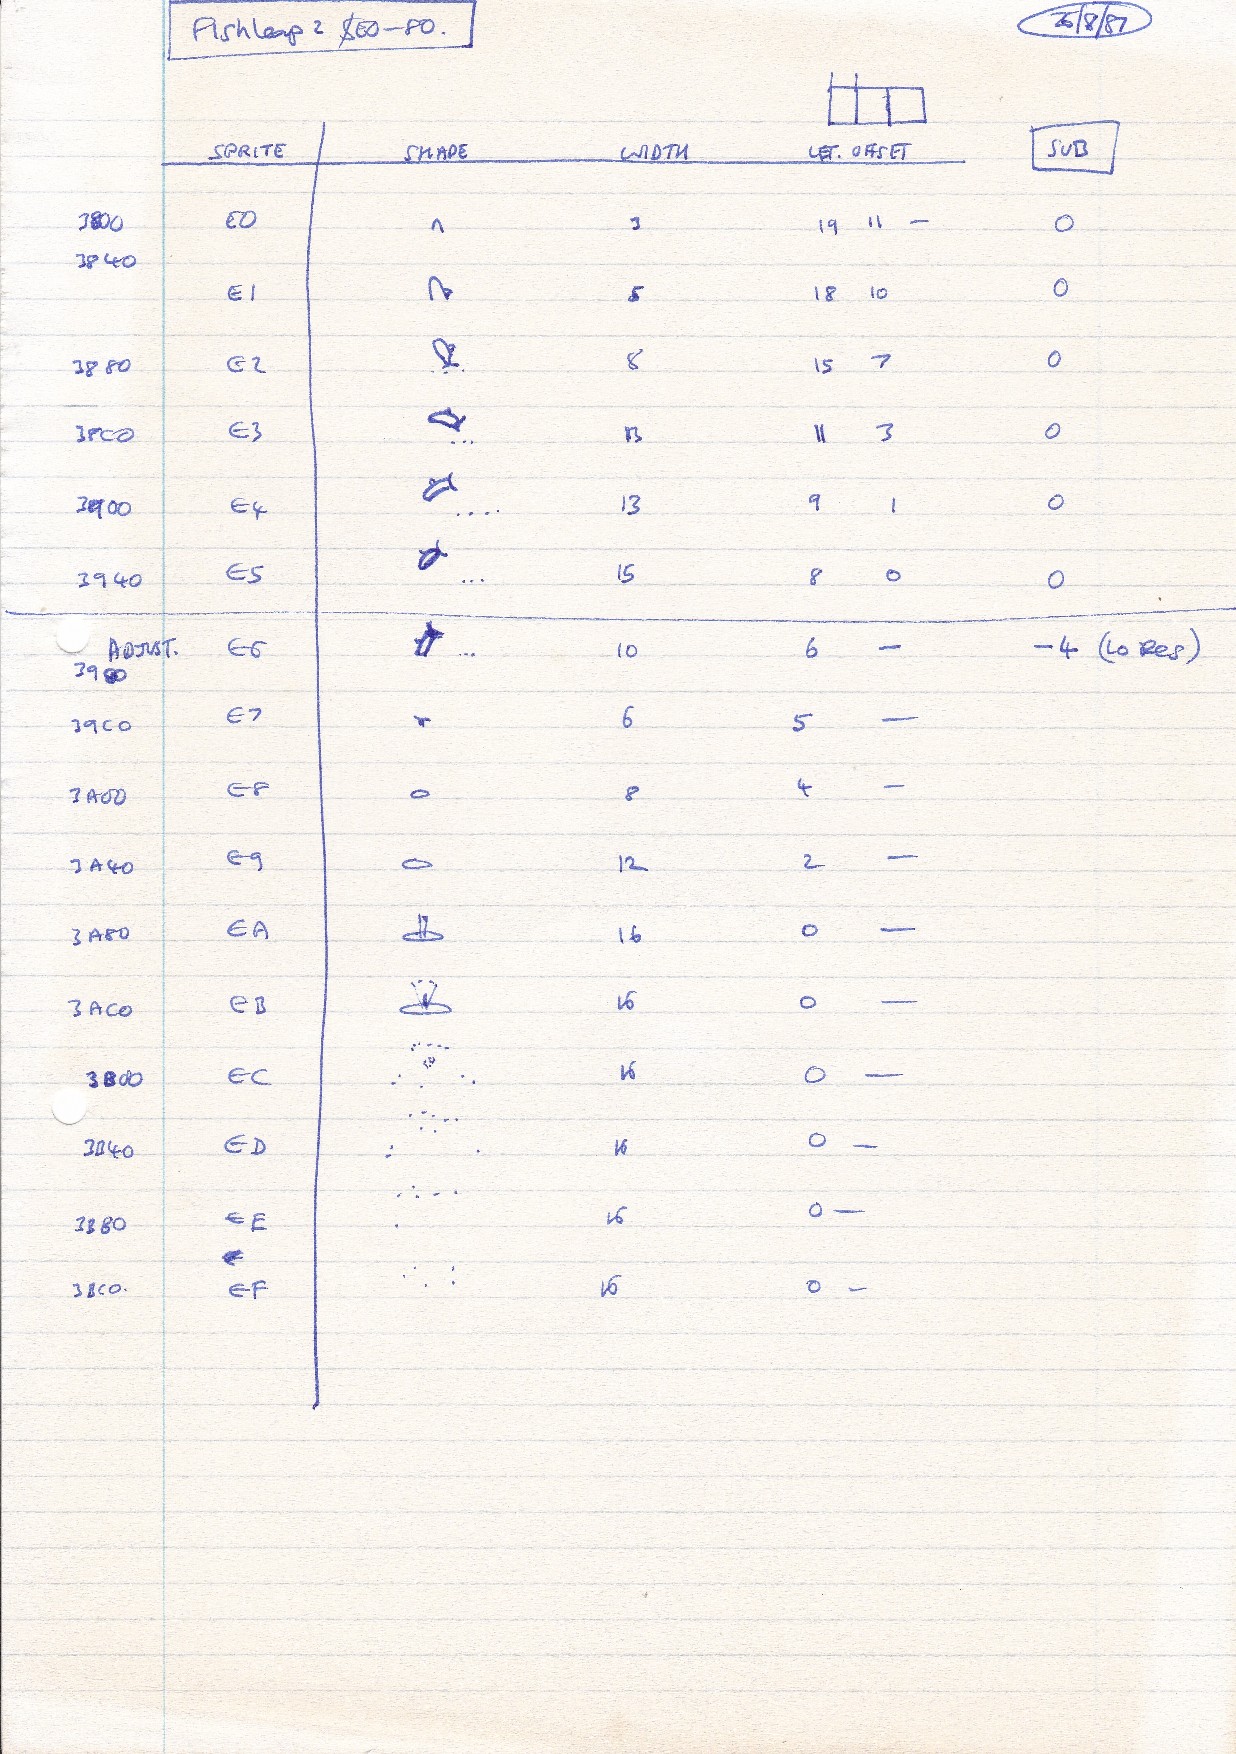 Fishleap 2 $E0-80.
26/8/87
SPRITE SHAPE WIDTH LET. OFFSET SUB
3800 E0 3 19 11 — 0
3840
E1 5 18 10 0
3880 E2 8 15 7 0
38C0 E3 13 11 3 0
3900 E4 13 9 1 0
3940 E5 15 8 0 0
ADJUST. E6 10 6 — -4 (Lo Res)
3980
39C0 E7 6 5 —
3A00 E8 8 4 —
3A40 E9 12 2 —
3A80 EA 16 0 —
3AC0 EB 16 0 —
3B00 EC 16 0 —
3B40 ED 16 0 —
3B80 EE 16 0 —
3BC0. EF 16 0 —